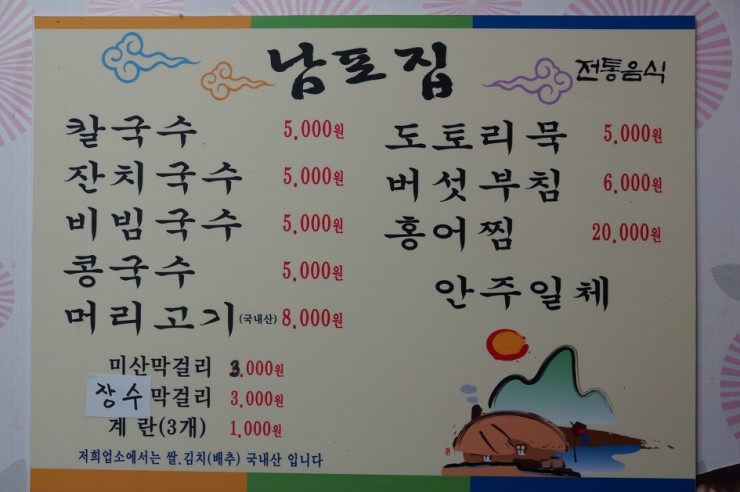 남포집 전통음식
칼국수 5,000원
잔치국수 5,000원
비빔국수 5,000원
콩국수 5,000원
머리고기(국내산) 8,000원
미산막걸리 3,000원
장수막걸리 3,000원
계란(3개) 1,000원
저희업소에서는 쌀.김치(배추) 국내산 입니다
도토리묵 5,000원
버섯부침 6,000원
홍어찜 20,000원
안주일체